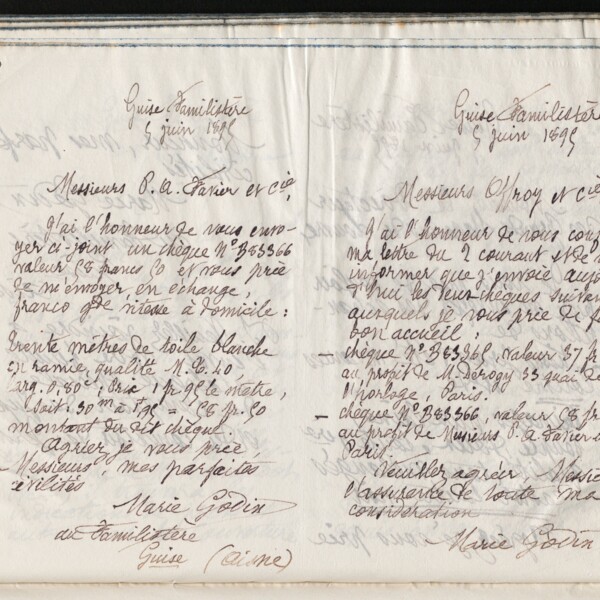 Guise Familistère
5 juin 1895
Messieurs P. A. Favier et Cie,
J'ai l'honneur de vous envo-
yer ci-joint un chèque N° B83366
valeur 58 francs 50 et vous prie
de m'envoyer en échange,
franco gde vitesse à domicile :
trente mètres de toile blanche
en ramie, qualité N. C. 40
larg. 0,80c; prix 1 fr 95 le mètre,
soit: 30m à 1f95 = 58 fr. 50
montant du dit chèque.
Agréer, je vous prie,
Messieurs, mes parfaites
civilités
Marie Godin
au Familistère
Guise (Aisne)
Guise Familistère
5 juin 1895
Messieurs Offroy et Cie
J'ai l'honneur de vous conf
ma lettre du 2 courant et de v
informer que j'envoie aujo
d'hui les deux chèques suivan
auxquels je vous prie de f
bon accueil.
– chèque N° B83365, valeur 37 fr
au profit de M. Derogy 33 quai de
l'horloge, Paris.
– chèque N° B83366, valeur 58 fr
au profit de Messieurs P. A. Favier
Paris.
Veuillez agréer, Messie
l'assurance de toute ma
considération
Marie Godin